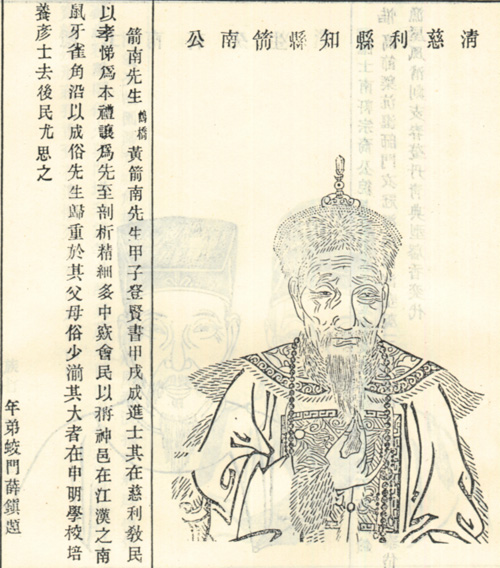 清慈利縣知縣箭南公
箭南先生 黃箭南先生甲子登賢書甲戌成進士其在慈利敎民
以孝悌爲本禮讓爲先至剖析精細多中窽會民以稱神邑在江漢之南
鼠牙雀角沿以成俗先生歸重於其父母俗少湔其大者在申明學校培
養彥士去後民尤思之
年弟蛟門薛鎮題